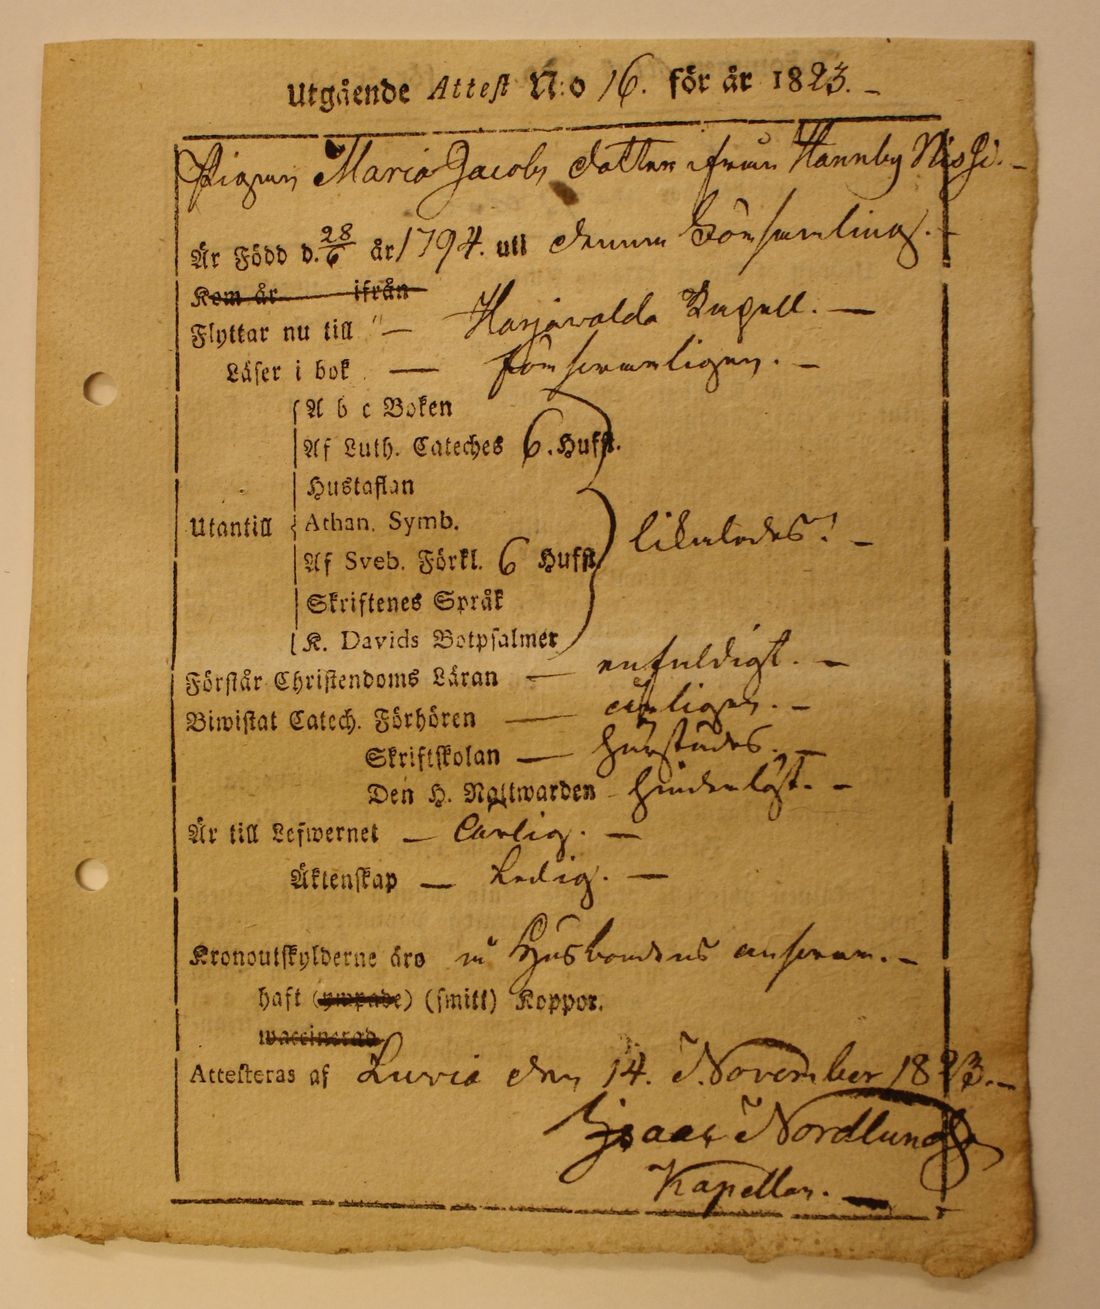 Utgående Attest N:o 16. för år 1823.
Pigan Maria Jacobs dotter ifrån Hannby
Är Född d. 28/6 år 1794. uti denna Församling.
Kom år ifrån
Flyttar nu till — Harjawalda Kapell. —
Läser i bok — försvarligen. —
A b c Boken
Af Luth. Cateches 6. Hufst.
Hustaflan
Utantill Athan. Symb. likaledes. —
Af Sveb. Förkl. 6 Hufst.
Skriftenes Språk
K. Davids Botpsalmer
Förstår Christendoms Läran — enfuldigt. —
Biwistat Catech. Förhören — årligen. —
Skriftskolan — härstädes. —
Den H. Nattwarden hinderlöst. —
Är till Lefwernet — Ärlig. —
Äktenskap — Ledig. —
Kronoutskylderne äro på Husbondens answar. —
haft (ympade) (smitt) Koppor.
waccinerad
Attesteras af Luvia den 14. November 1823. —
Isaac Nordlund
Kapellan. —